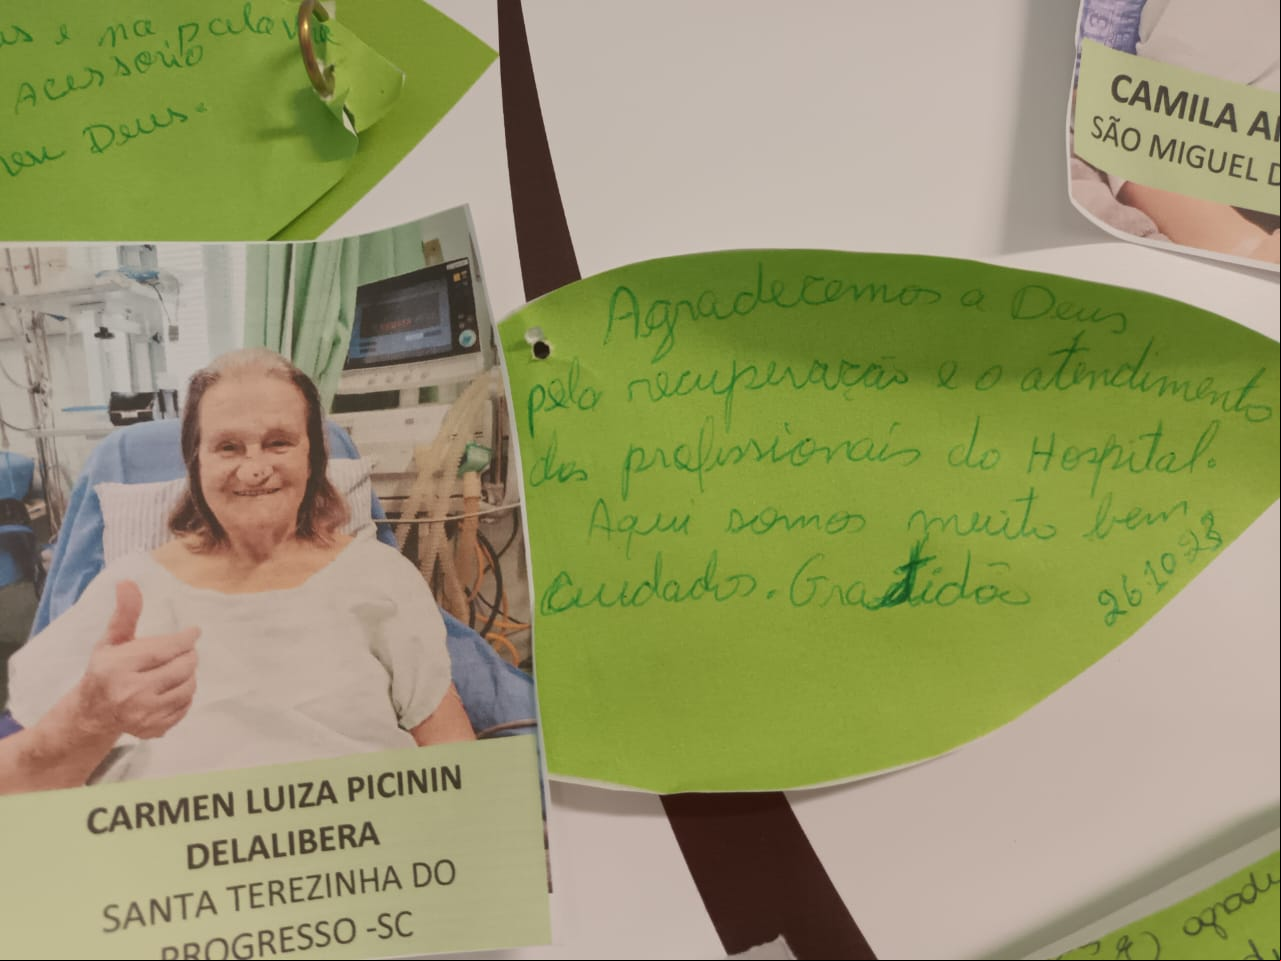 as e na palavra
Acessorio
meu Deus.
CAMILA
SÃO MIGUEL D
Agradecemos a Deus
pela recuperação e o atendimento
dos profissionais do Hospital.
Aqui somos muito bem
cuidados. Gratidão
26.10.23
CARMEN LUIZA PICININ
DELALIBERA
SANTA TEREZINHA DO
PROGRESSO -SC
agrade